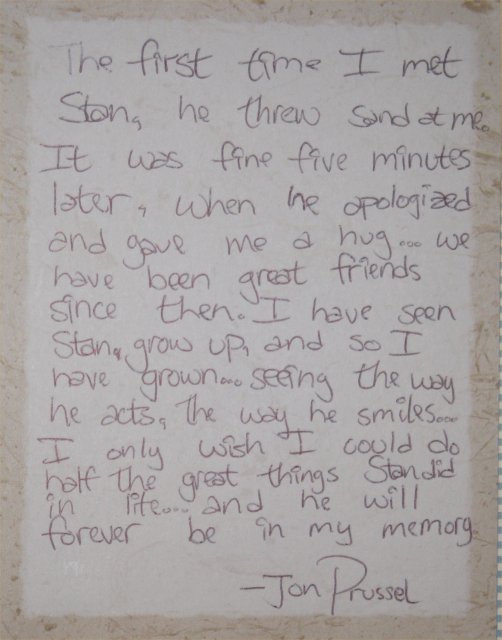 The first time I met
Stan, he threw sand at me.
It was fine five minutes
later, when he apologized
and gave me a hug... we
have been great friends
since then. I have seen
Stan, grow up, and so I
have grown... seeing the way
he acts, the way he smiles...
I only wish I could do
half the great things Stan did
in life... and he will
forever be in my memory.
-Jon Prussel